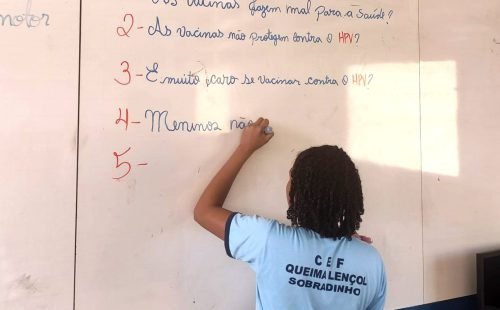 motor
vacinas fazem mal para a saúde?
2- As vacinas não protegem contra o HPV?
3- É muito caro se vacinar contra o HPV?
4- Meninos não
5-
C E F
QUEIMA LENÇOL
SOBRADINHO